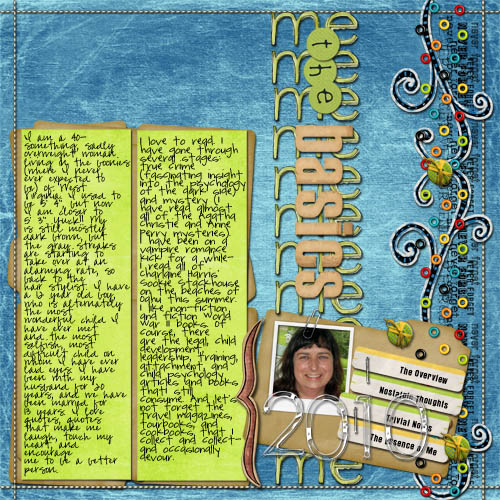 I am a 40-
something, sadly
overweight woman
living in the boonies
(where I never
ever expected to
be) of West
Virginia. I used to
be 5' 4", but now
I am closer to
5' 3". Yuck! My
is still mostly
dark brown, but
the gray streaks
are starting to
take over at an
alarming rate, so
back to the
hair stylist! I have
a 13 year old boy
who is alternately
the most
wonderful child I
have ever met
and the most
selfish, most
difficult child on
whom I have ever
laid eyes. I have
been with my
husband for 20
years, and we have
been married for
13 years. I love
quotes, quotes
that make me
laugh, touch my
heart, and
encourage
me to be a better
person.
I love to read. I
have gone through
several stages:
true crime
(fascinating insight
into the psychology
of the dark side)
and mystery (I
have read almost
all of the Agatha
Christie and Anne
Perry mysteries).
I have been on a
vampire romance
kick for a while-
I read all of
Charlaine Harris'
Sookie Stackhouse
on the beaches of
Oahu this summer.
I like non-fiction
and fiction World
War II books. Of
course, there
are the legal, child
development,
leadership, training,
attachment, and
child psychology
articles and books
that I still
consume. And let's
not forget the
travel magazines,
tourbooks, and
cookbooks that I
collect and collect-
and occasionally
devour.
me
the
basics
me
The Overview
Nostalgic Thoughts
Trivial Notes
The Essence of Me
2010